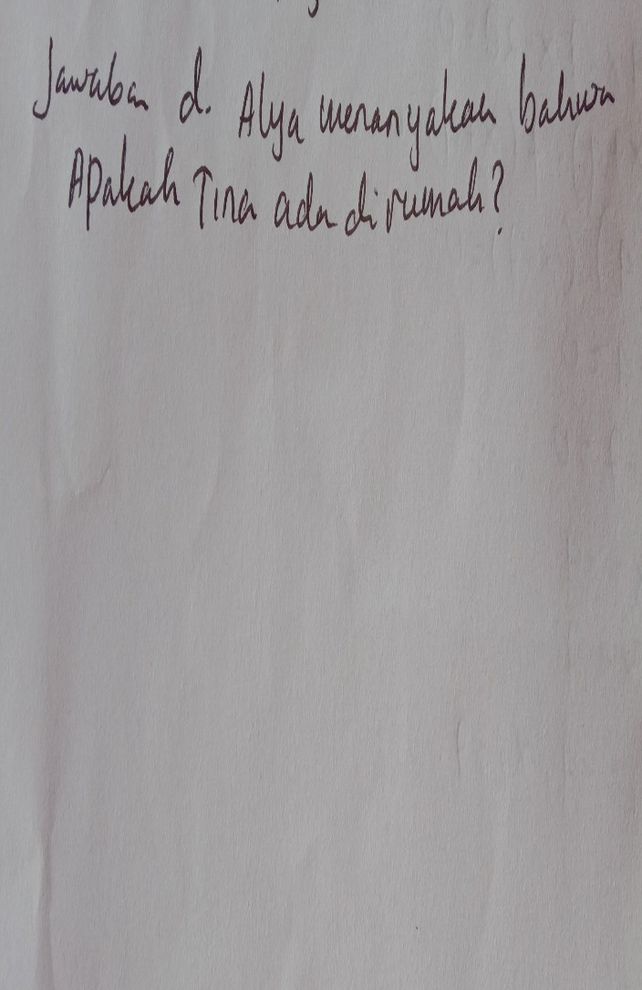 Jawaban d. Alya menanyakan bahwa
Apakah Tina ada di rumah?